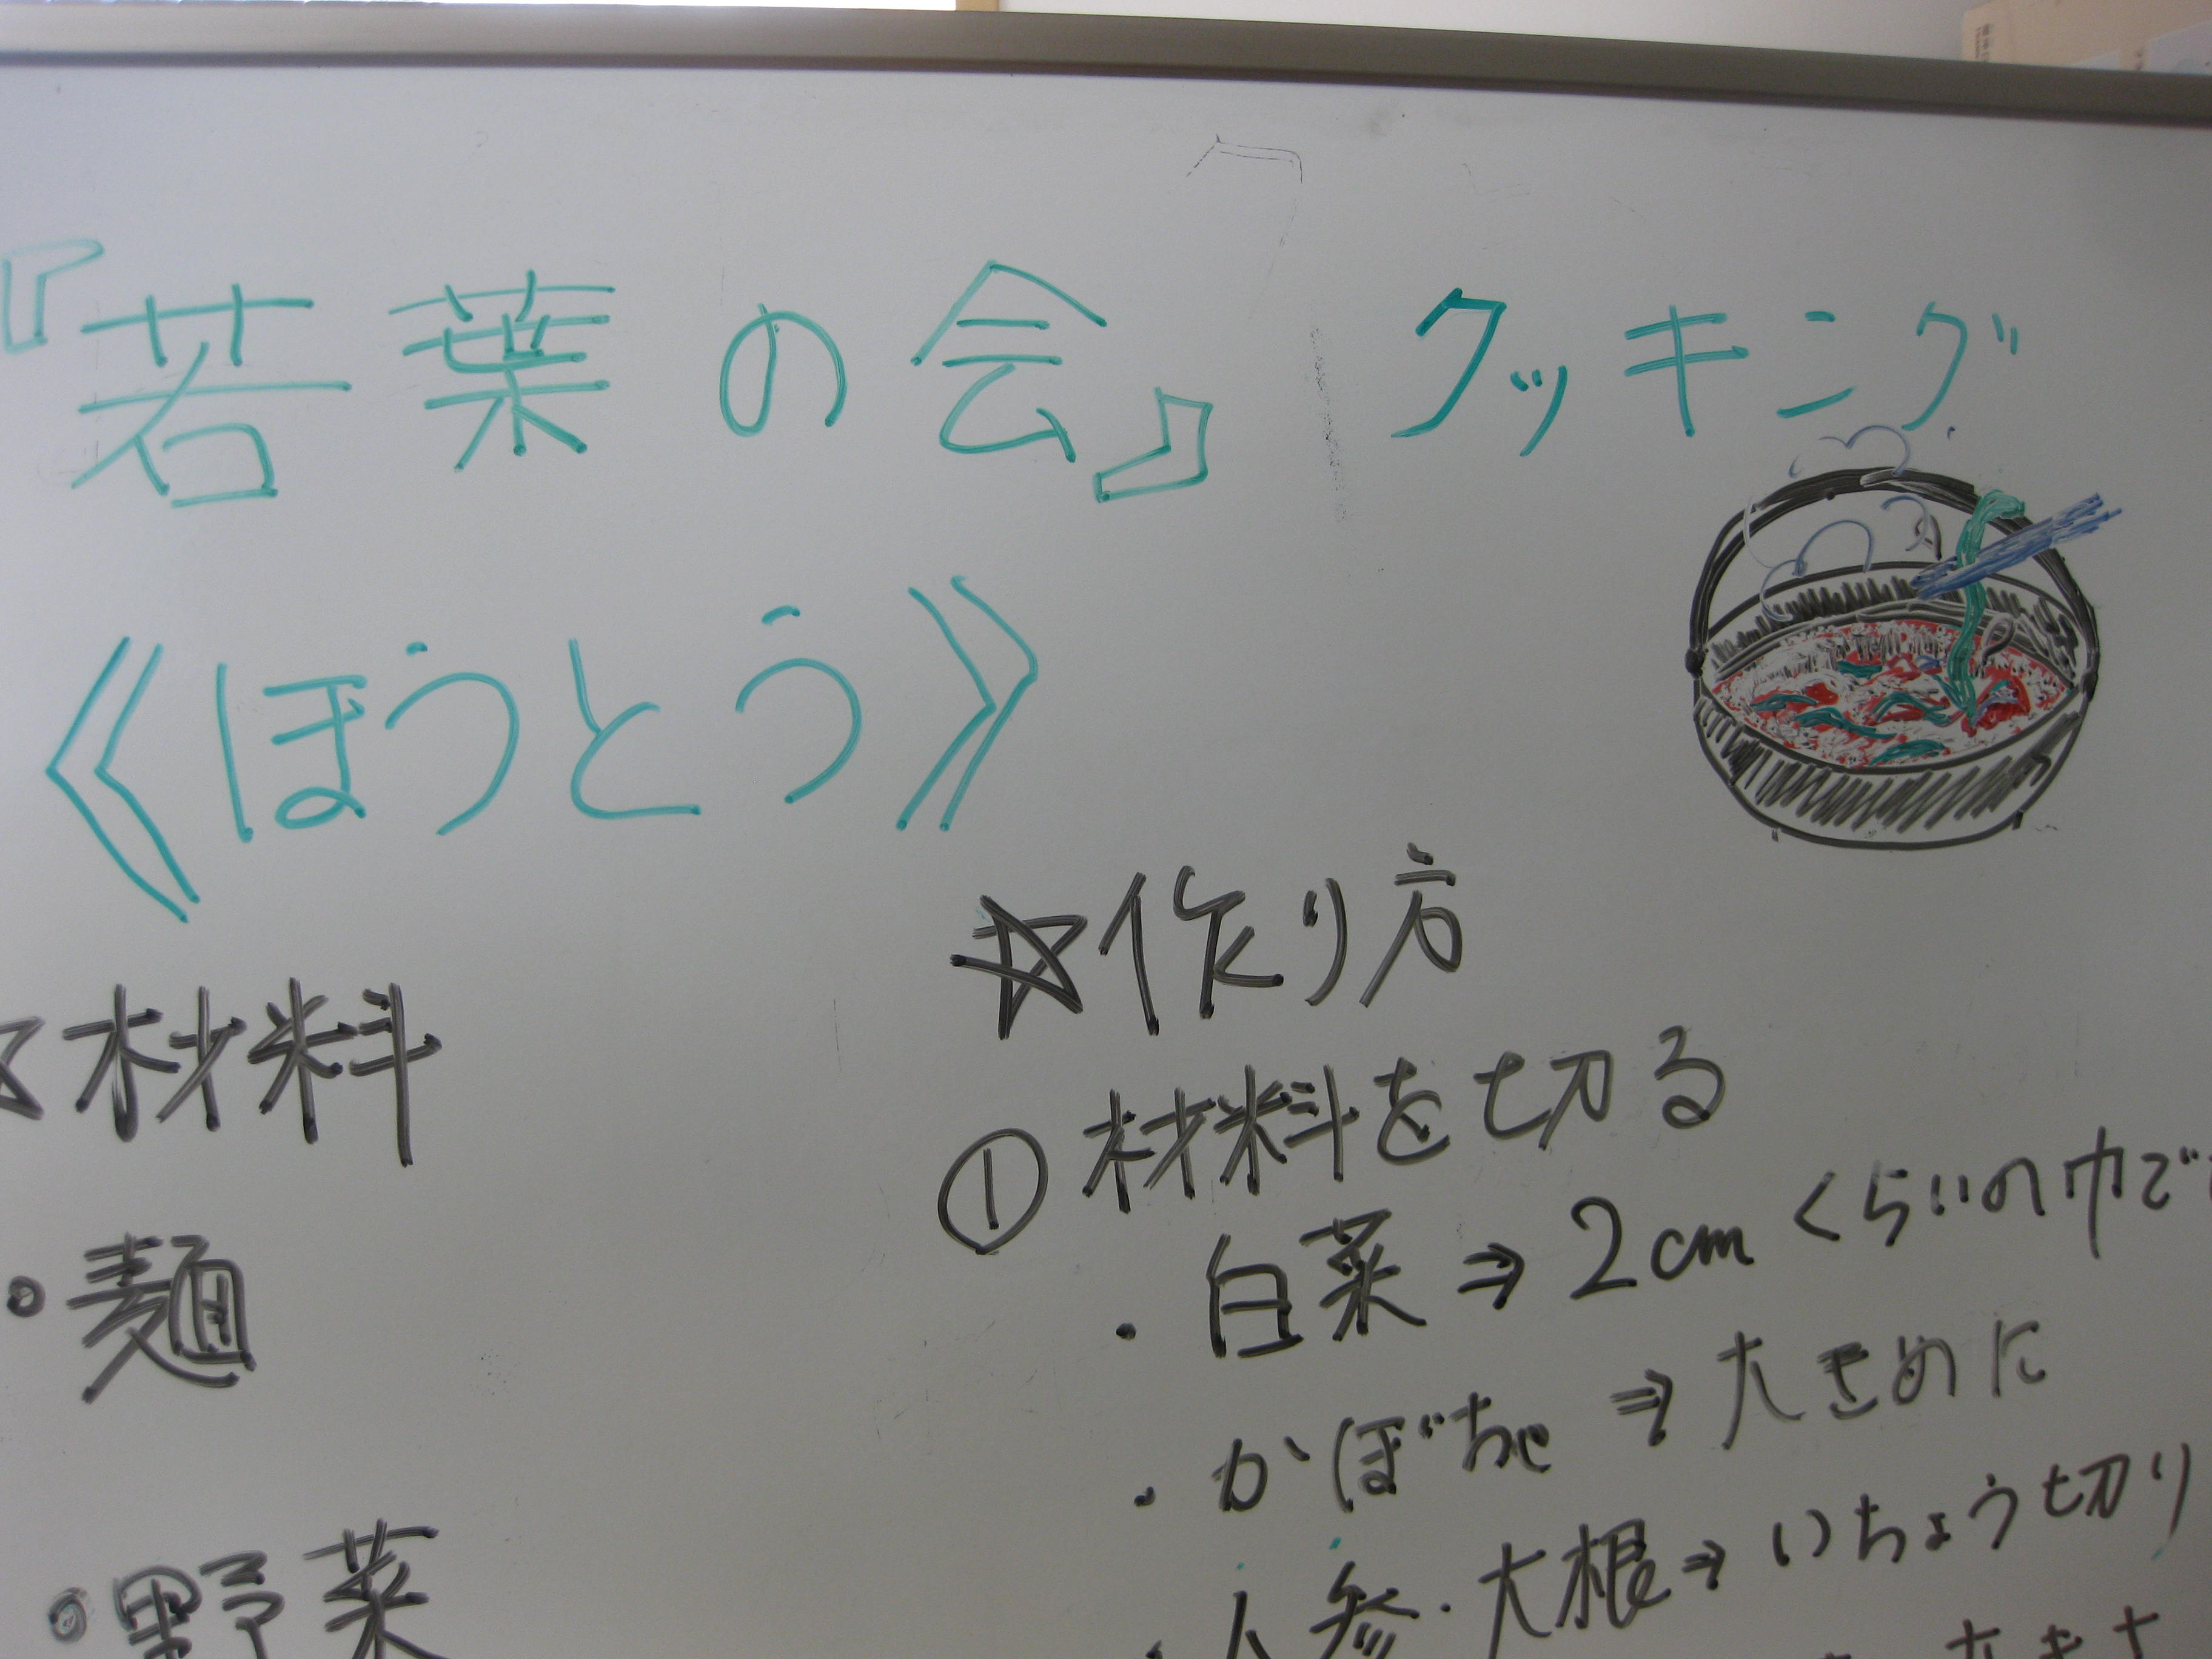 『若葉の会』 クッキング
《ほうとう》
☆材料
・麺
・野菜
☆作り方
①材料を切る
・白菜⇒2cmくらいの巾で
・かぼちゃ⇒大きめに
・人参・大根⇒いちょう切り